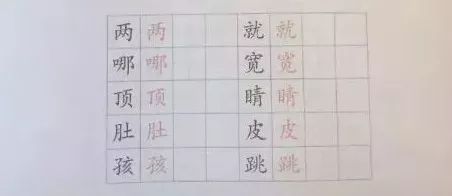 两 两 就 就
哪 哪 宽 宽
顶 顶 晴 晴
肚 肚 皮 皮
孩 孩 跳 跳